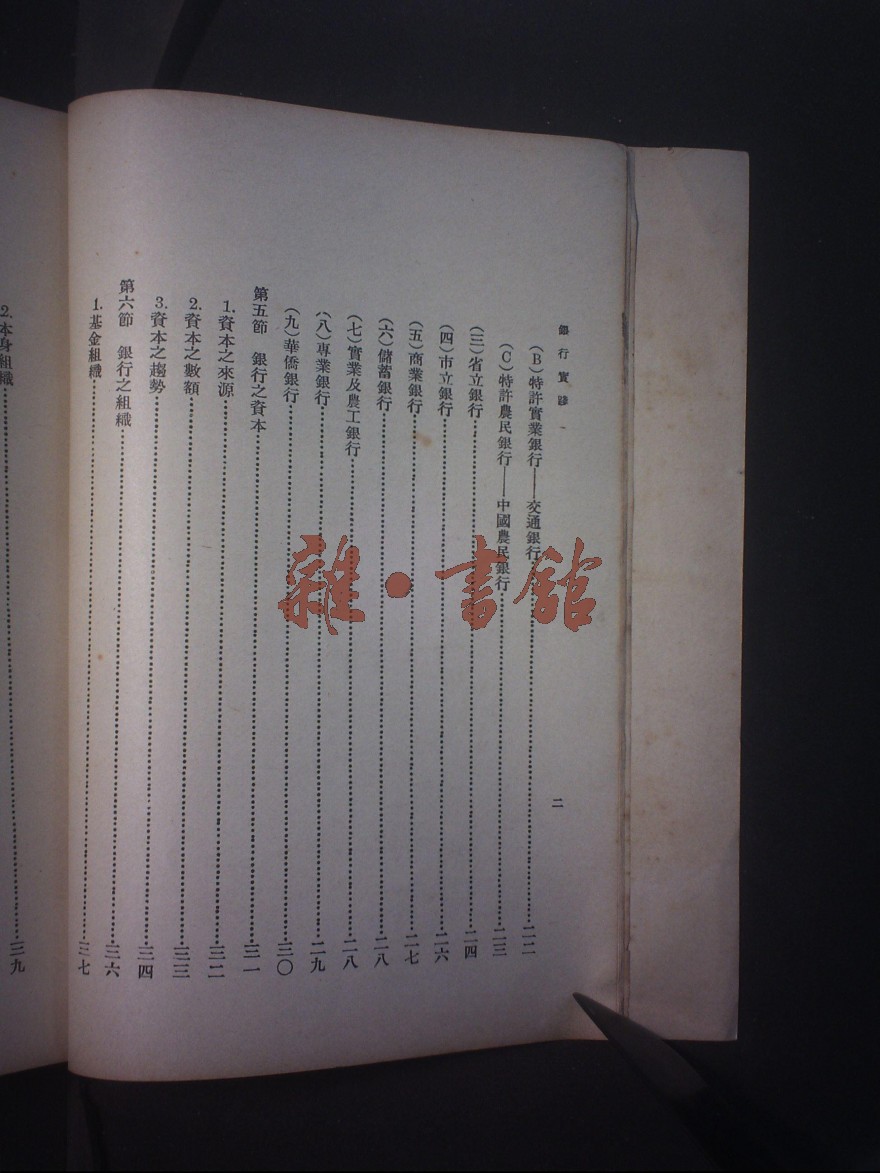 銀行實踐
二
(B)特許實業銀行——交通銀行………二二
(C)特許農民銀行——中國農民銀行………二三
(三)省立銀行………二四
(四)市立銀行………二六
(五)商業銀行………二七
(六)儲蓄銀行………二八
(七)實業及農工銀行………二八
(八)專業銀行………二九
(九)華僑銀行………三〇
第五節 銀行之資本………三一
1.資本之來源………三二
2.資本之數額………三三
3.資本之趨勢………三四
第六節 銀行之組織………三六
1.基金組織………三七
2.本身組織………三九
雜·書館